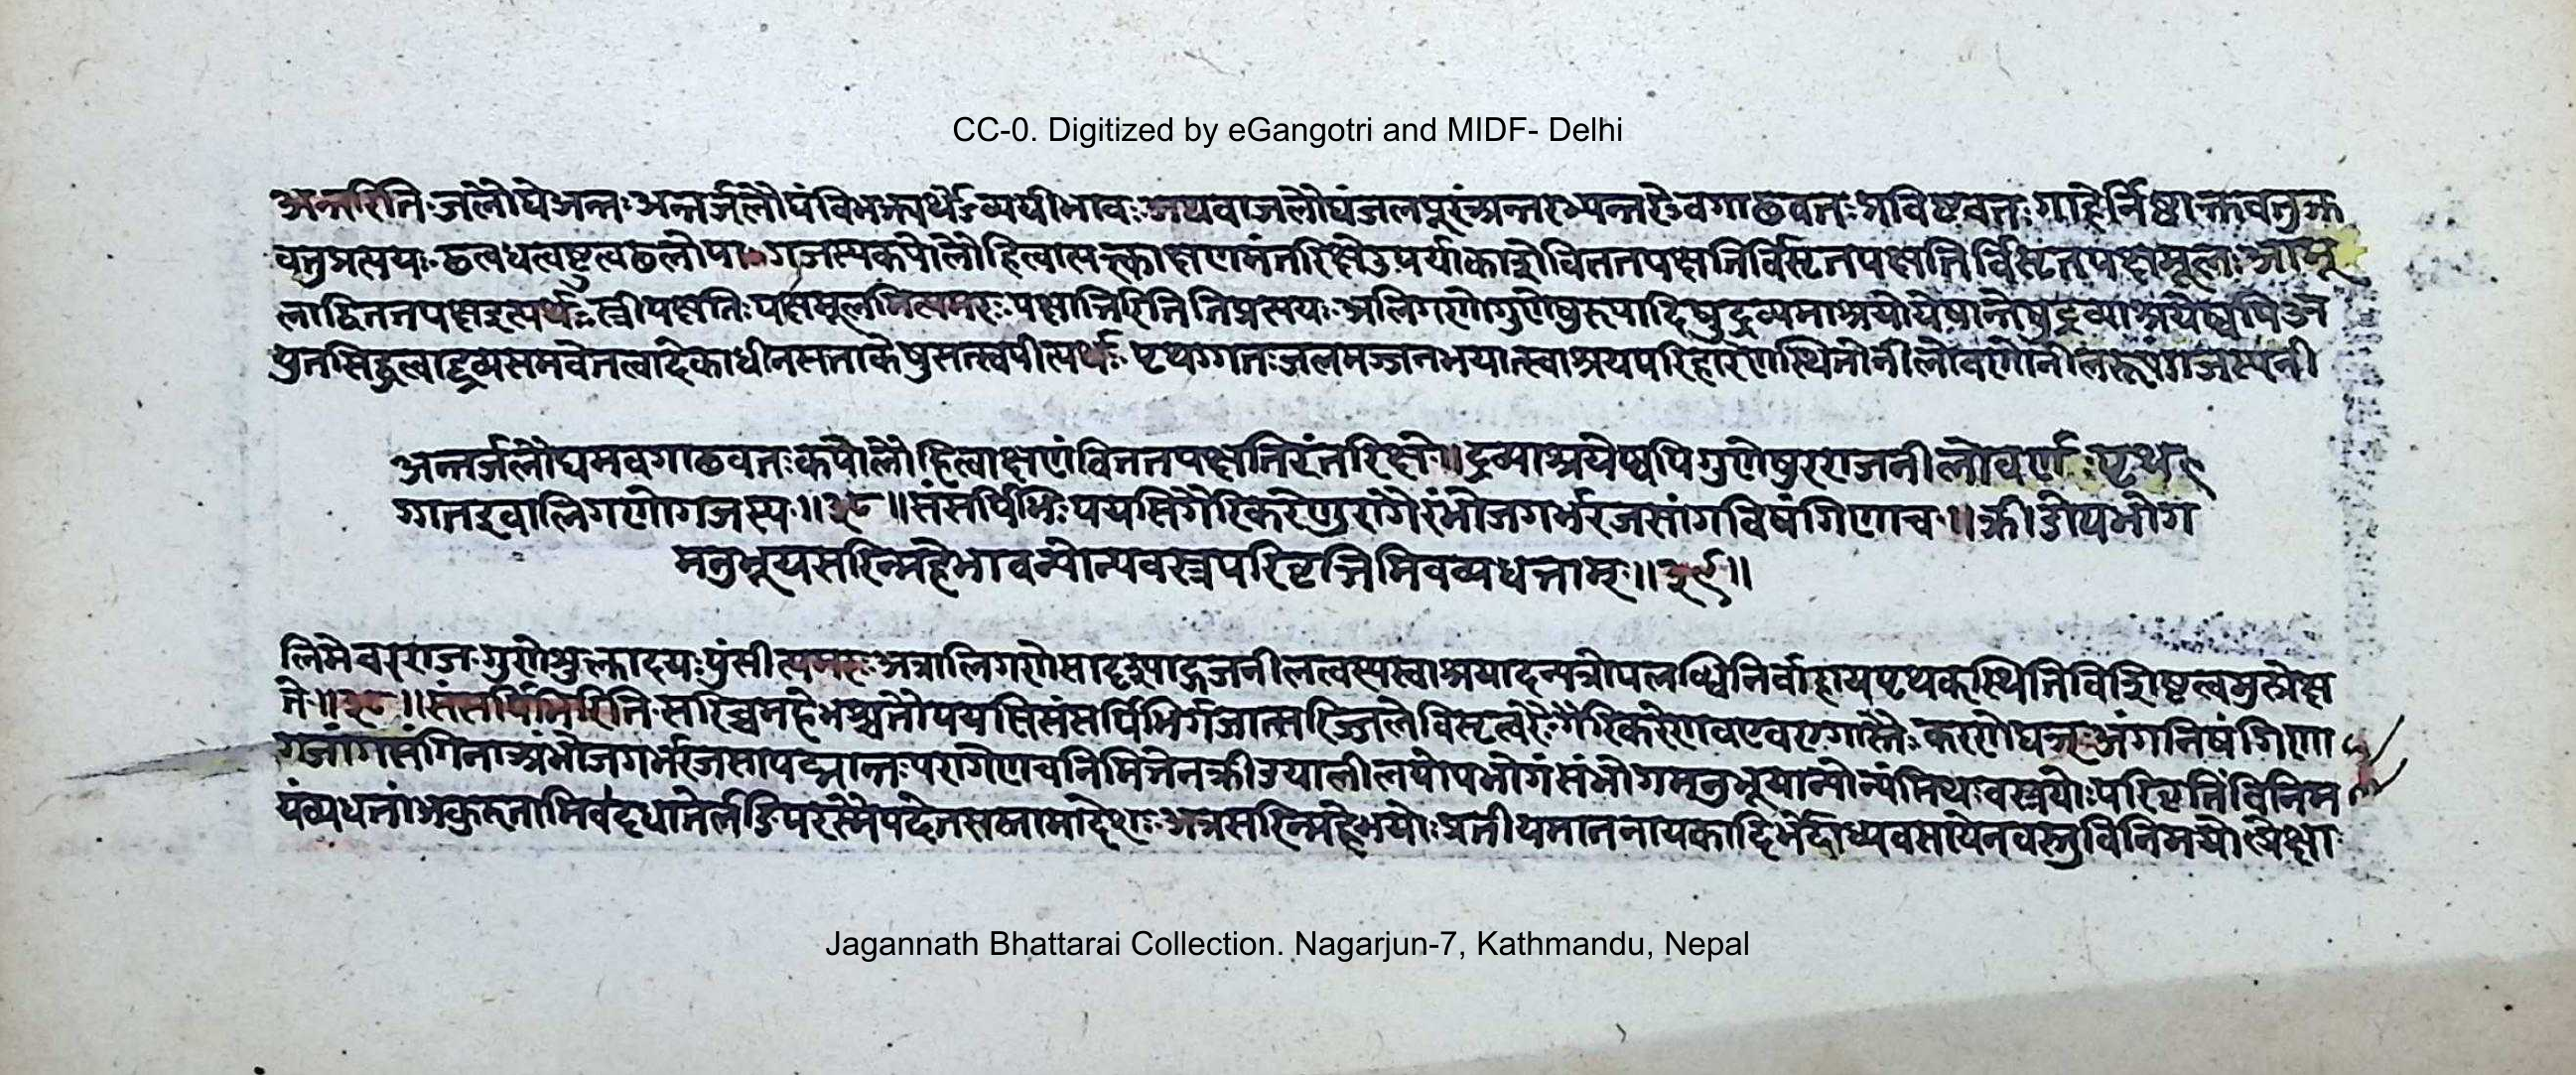 CC-0. Digitized by eGangotri and MIDF- Delhi
अन्तरिति जलौघे अन्तः अन्तर्जलौघं विभक्त्यर्थेऽव्ययीभावः अथवा जलौघं जलपूरं अन्तरभ्यन्तरेऽवगाढवतः प्रविष्टवतः गाहेर्निष्ठा क्तवतु क्त
वतु प्रत्ययः ढत्वधत्वष्टुत्वढलोपाः गजस्य कपोलौ हित्वा त्यक्त्वा क्षणमंतरिक्षे उपर्याकाशे विततपक्षति
लाद्विततपक्ष इत्यर्थः स्त्री पक्षतिः पक्षमूलमित्यमरः पक्षात्तिरिति तिप्रत्ययः अलिगणो गुणेषु रूपादिषु द्रव्यमाश्रयो येषान्तेषु द्रव्याश्रयेष्वपि अ
युतसिद्धत्वाद्द्रव्यसमवेतत्वादेकाधीनसत्ताकेषु सत्स्वपीत्यर्थः पृथग्गतः जलमज्जनभयात्स्वाश्रयपरिहारेण स्थितो नीलो वर्णो नीलरूपं गजस्य नी
अन्तर्जलौघमवगाढवतः कपोलौ हित्वा क्षणं विततपक्षतिरंतरिक्षे ॥ द्रव्याश्रयेष्वपि गुणेषु रराज नीलो वर्णः पृथ
ग्गत इवालिगणो गजस्य ॥ ३८ ॥ संसर्पिभिः पयसि गैरिकरेणुरागैरंभोजगर्भरजसांगविषंगिणा च ॥ क्रीडोपभोग
मनुभूय सरिन्महेभावन्योन्यवस्त्रपरिवृत्तिमिव व्यधत्ताम् ॥ ३९ ॥
लिमेव रराज गुणे शुक्लादयः पुंसीत्यमरः अत्रालिगणे सादृश्याद्गजनीलत्वस्य स्वाश्रयादन्यत्रोपलब्धिनिर्वाहाय पृथक्स्थितिविशिष्टत्वमुत्प्रेक्ष्य
ते ॥ ३८ ॥ संसर्पिभिरिति सरिच्च महेभश्च तौ पयसि संसर्पिभिर्गजात्सरिज्जले विसृत्वरैः गैरिकरेणव एव रागास्तैः करणे घञ् अंगनिषंगिणा
गजांगसंगिना अंभोजगर्भरजसा पद्मान्तःपरागेण च निमित्तेन क्रीडया लीलयोपभोगं संभोगमनुभूयान्योन्यं मिथः वस्त्रयोः परिवृत्तिं विनिम
यं व्यधत्तां अकुरुतामिव दधातेर्लङि परस्मैपदे तसस्तामादेशः अत्र सरिन्महेभयोः प्रतीयमाननायकादिभेदाध्यवसायेन वस्तुविनिमयोत्प्रेक्षा
Jagannath Bhattarai Collection. Nagarjun-7, Kathmandu, Nepal